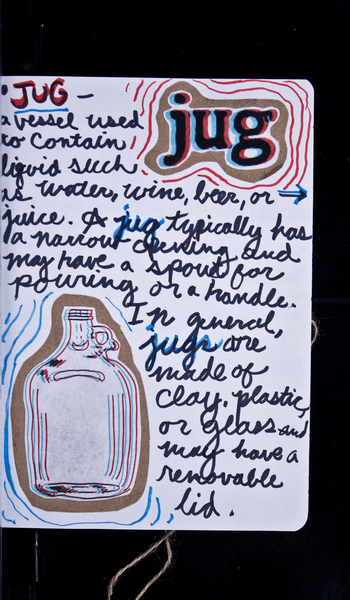 • JUG —
jug
a vessel used
to contain
liquid such
as water, wine, beer, or →
juice. A jug typically has
a narrow opening and
may have a spout for
pouring or a handle.
In general,
jugs are
made of
clay, plastic,
or glass and
may have a
removable
lid.